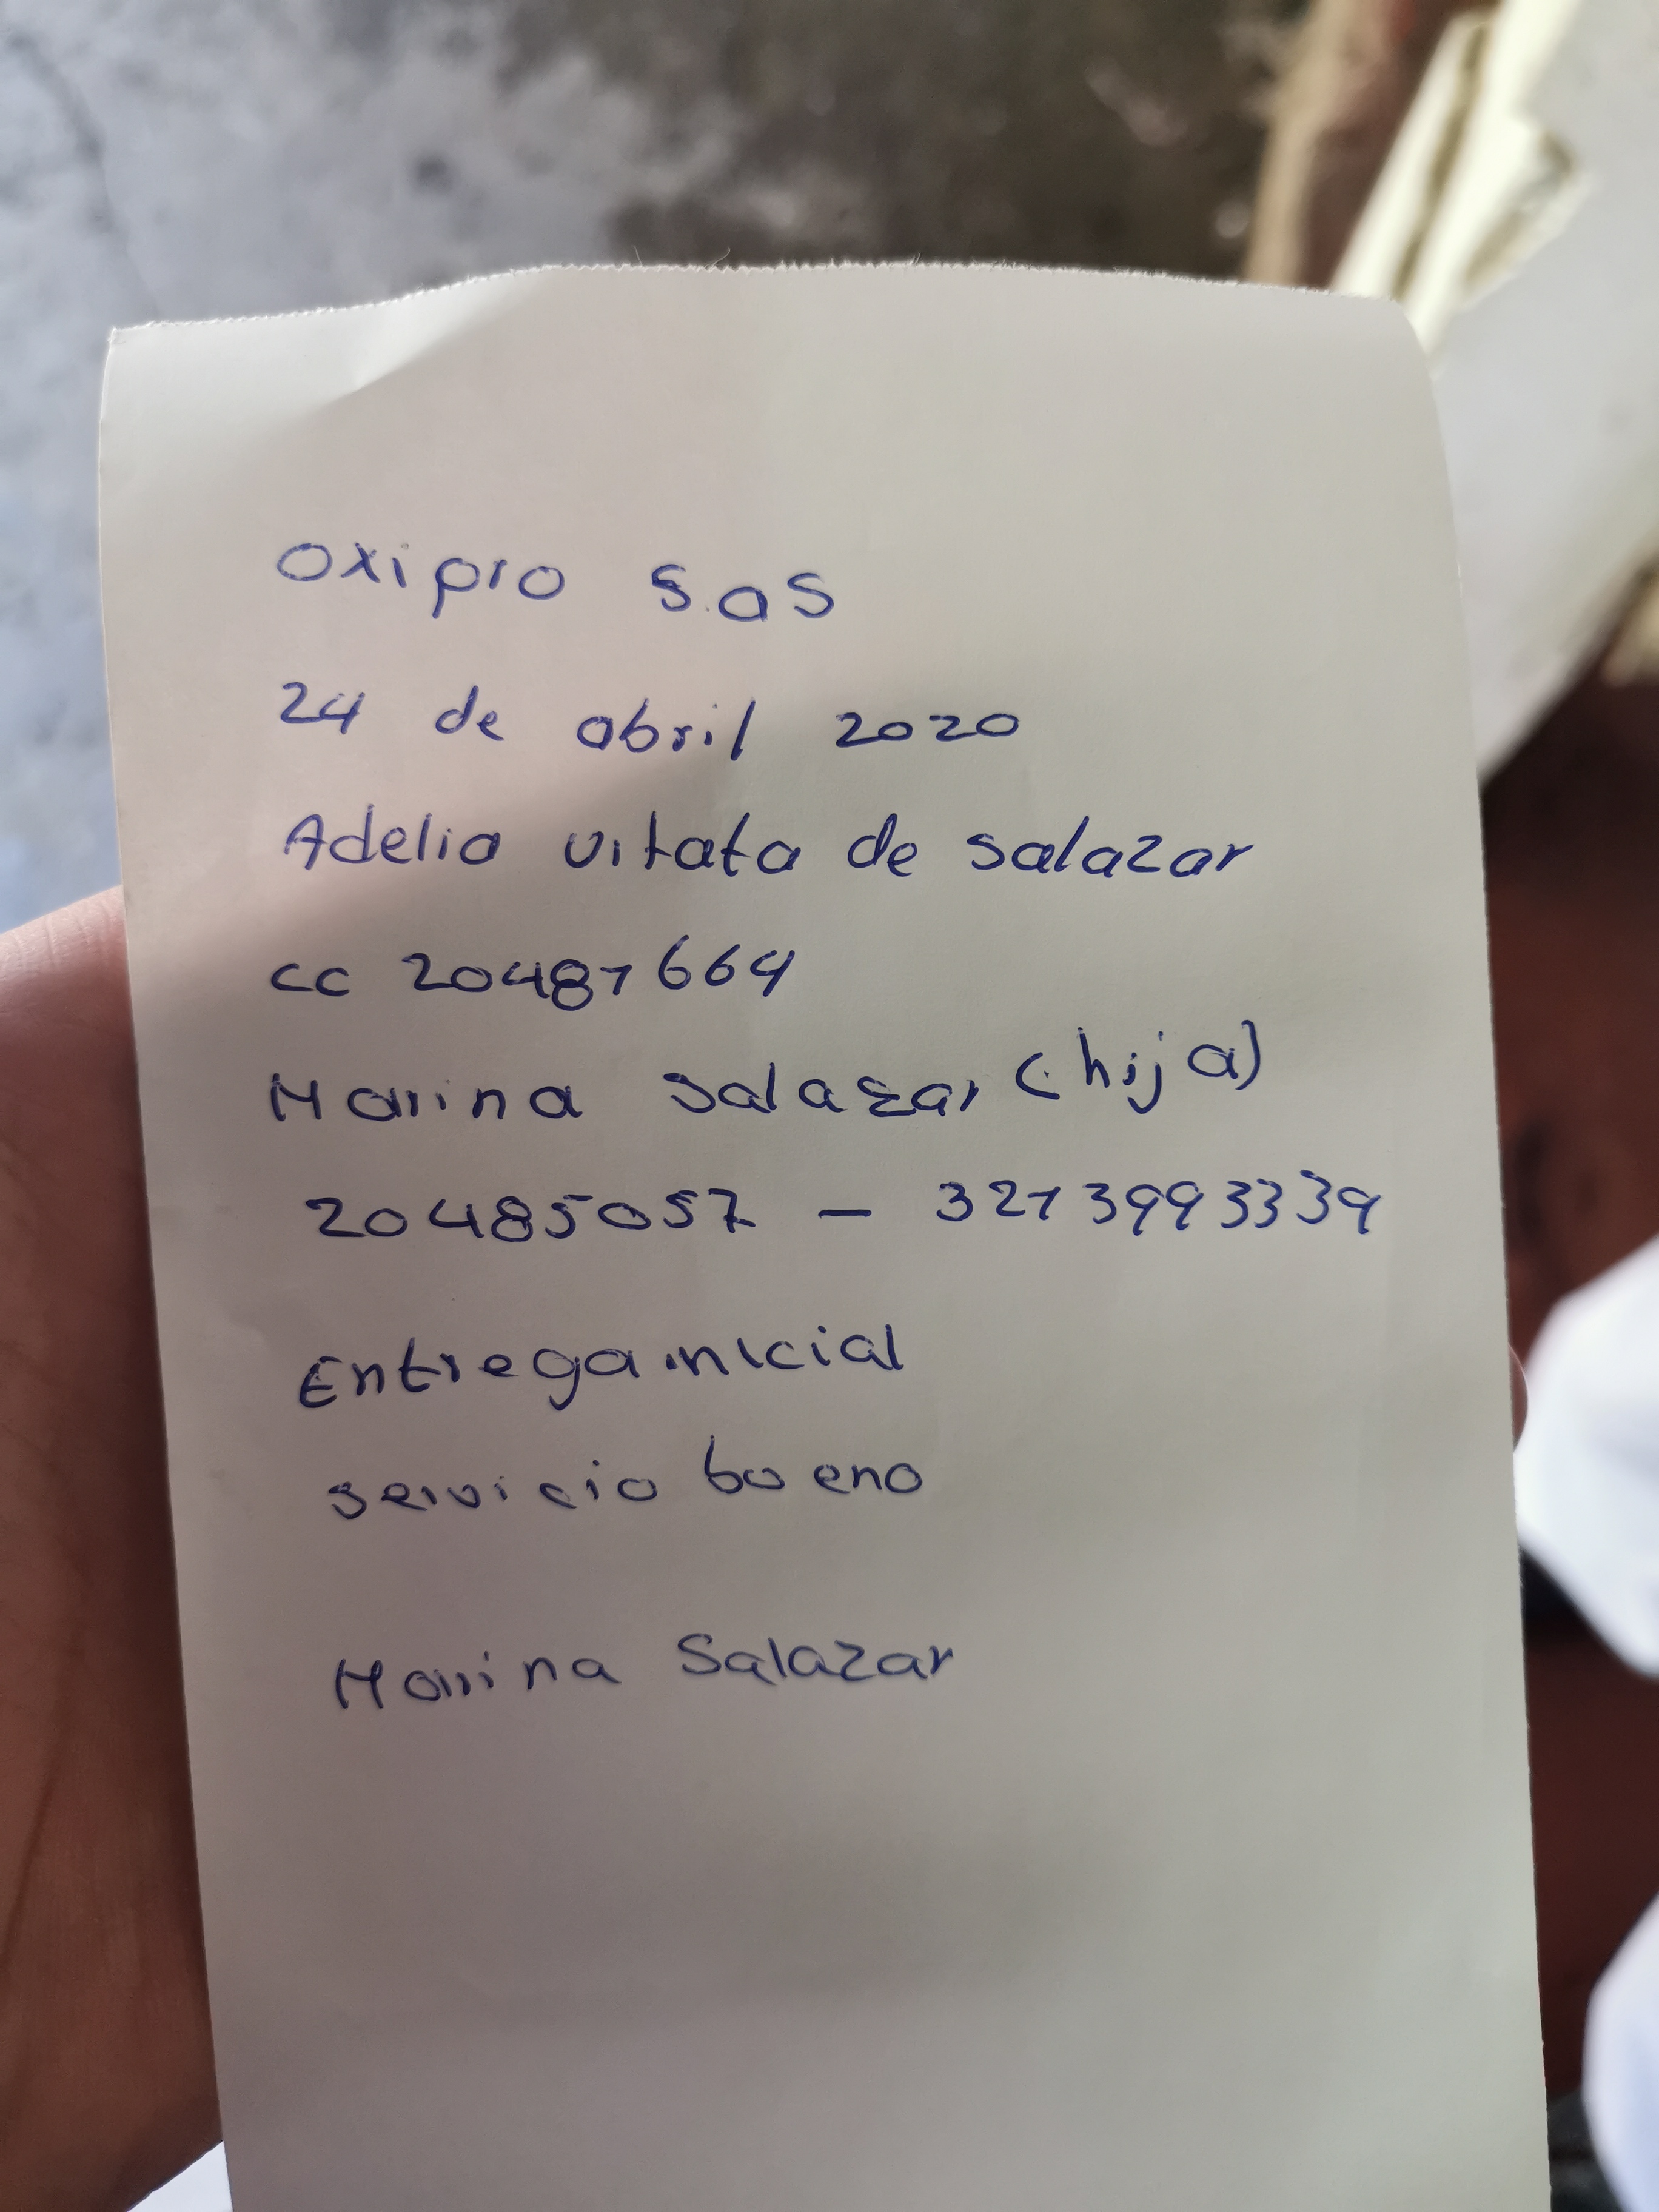 Oxipro S.aS
24 de abril 2020
Adelia vitata de salazar
cc 20487664
Marina Salazar (hija)
20485057 - 3213993339
Entrega inicial
servicio bueno
Marina Salazar